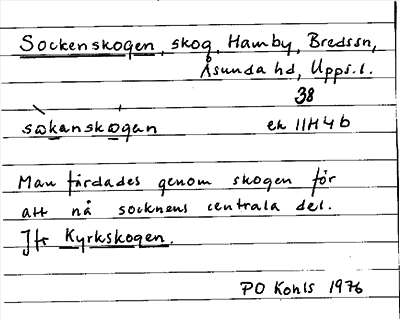 Sockenskogen, skog, Hamby, Bredssn,
Åsunda hd, Upps.l.
38
sωkanskωgan ek 11H4b
Man färdades genom skogen för
att nå socknens centrala del.
Jfr Kyrkskogen.
PO Kohls 1976